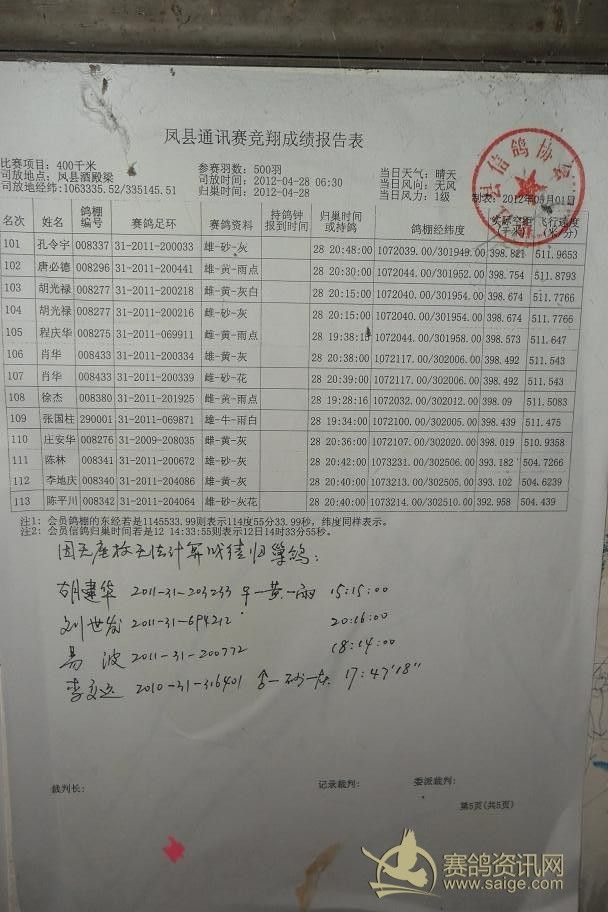 凤县通讯赛竞翔成绩报告表
比赛项目: 400千米 参赛羽数: 500羽 当日天气: 晴天
司放地点: 凤县酒殿梁 司放时间: 2012-04-28 06:30 当日风向: 无风
司放地经纬: 1063335.52/335145.51 归巢时间: 2012-04-28 当日风力: 1级 制表: 2012年05月01日
信鸽协会
名次 姓名 鸽棚编号 赛鸽足环 赛鸽资料 持鸽钟报到时间 归巢时间或持鸽 鸽棚经纬度 实际空距(千米) 飞行速度(米/分)
101 孔令宇 008337 31-2011-200033 雄-砂-灰 28 20:48:00 1072039.00/301949.00 398.821 511.9653
102 唐必德 008296 31-2011-200441 雌-黄-雨点 28 20:30:00 1072044.00/301952.00 398.754 511.8793
103 胡光禄 008277 31-2011-200218 雄-黄-灰白 28 20:15:00 1072040.00/301954.00 398.674 511.7766
104 胡光禄 008277 31-2011-200216 雄-砂-灰 28 20:15:00 1072040.00/301954.00 398.674 511.7766
105 程庆华 008275 31-2011-069911 雄-黄-雨点 28 19:38:15 1072044.00/301958.00 398.573 511.647
106 肖华 008433 31-2011-200334 雌-黄-灰 28 20:38:00 1072117.00/302006.00 398.492 511.543
107 肖华 008433 31-2011-200339 雌-砂-花 28 20:39:00 1072117.00/302006.00 398.492 511.543
108 徐杰 008380 31-2011-201925 雄-黄-雨点 28 19:28:16 1072032.00/302012.00 398.09 511.5083
109 张国柱 290001 31-2011-069871 雄-牛-雨白 28 19:34:00 1072100.00/302005.00 398.439 511.475
110 庄安华 008276 31-2009-208035 雌-黄-灰 28 20:36:00 1072107.00/302020.00 398.019 510.9358
111 陈林 008341 31-2011-200672 雄-砂-灰 28 20:42:00 1073231.00/302506.00 393.182 504.7266
112 李地庆 008340 31-2011-204086 雄-黄-灰 28 20:40:00 1073213.00/302505.00 393.102 504.6239
113 陈平川 008342 31-2011-204064 雄-砂-灰花 28 20:40:00 1073214.00/302510.00 392.958 504.439
注1: 会员鸽棚的东经若是1145533.99则表示114度55分33.99秒, 纬度同样表示。
注2: 会员信鸽归巢时间若是12 14:33:55则表示12日14时33分55秒。
因无座标无法计算成绩归巢鸽:
胡建华 2011-31-203233 黄一雨 15:15:00
刘世发 2011-31-694212 20:16:00
易波 2011-31-200772 18:14:00
李文运 2010-31-316401 一砂一灰 17:47'18"
裁判长: 记录裁判: 委派裁判:
第5页(共5页)
赛鸽资讯网
www.saige.com